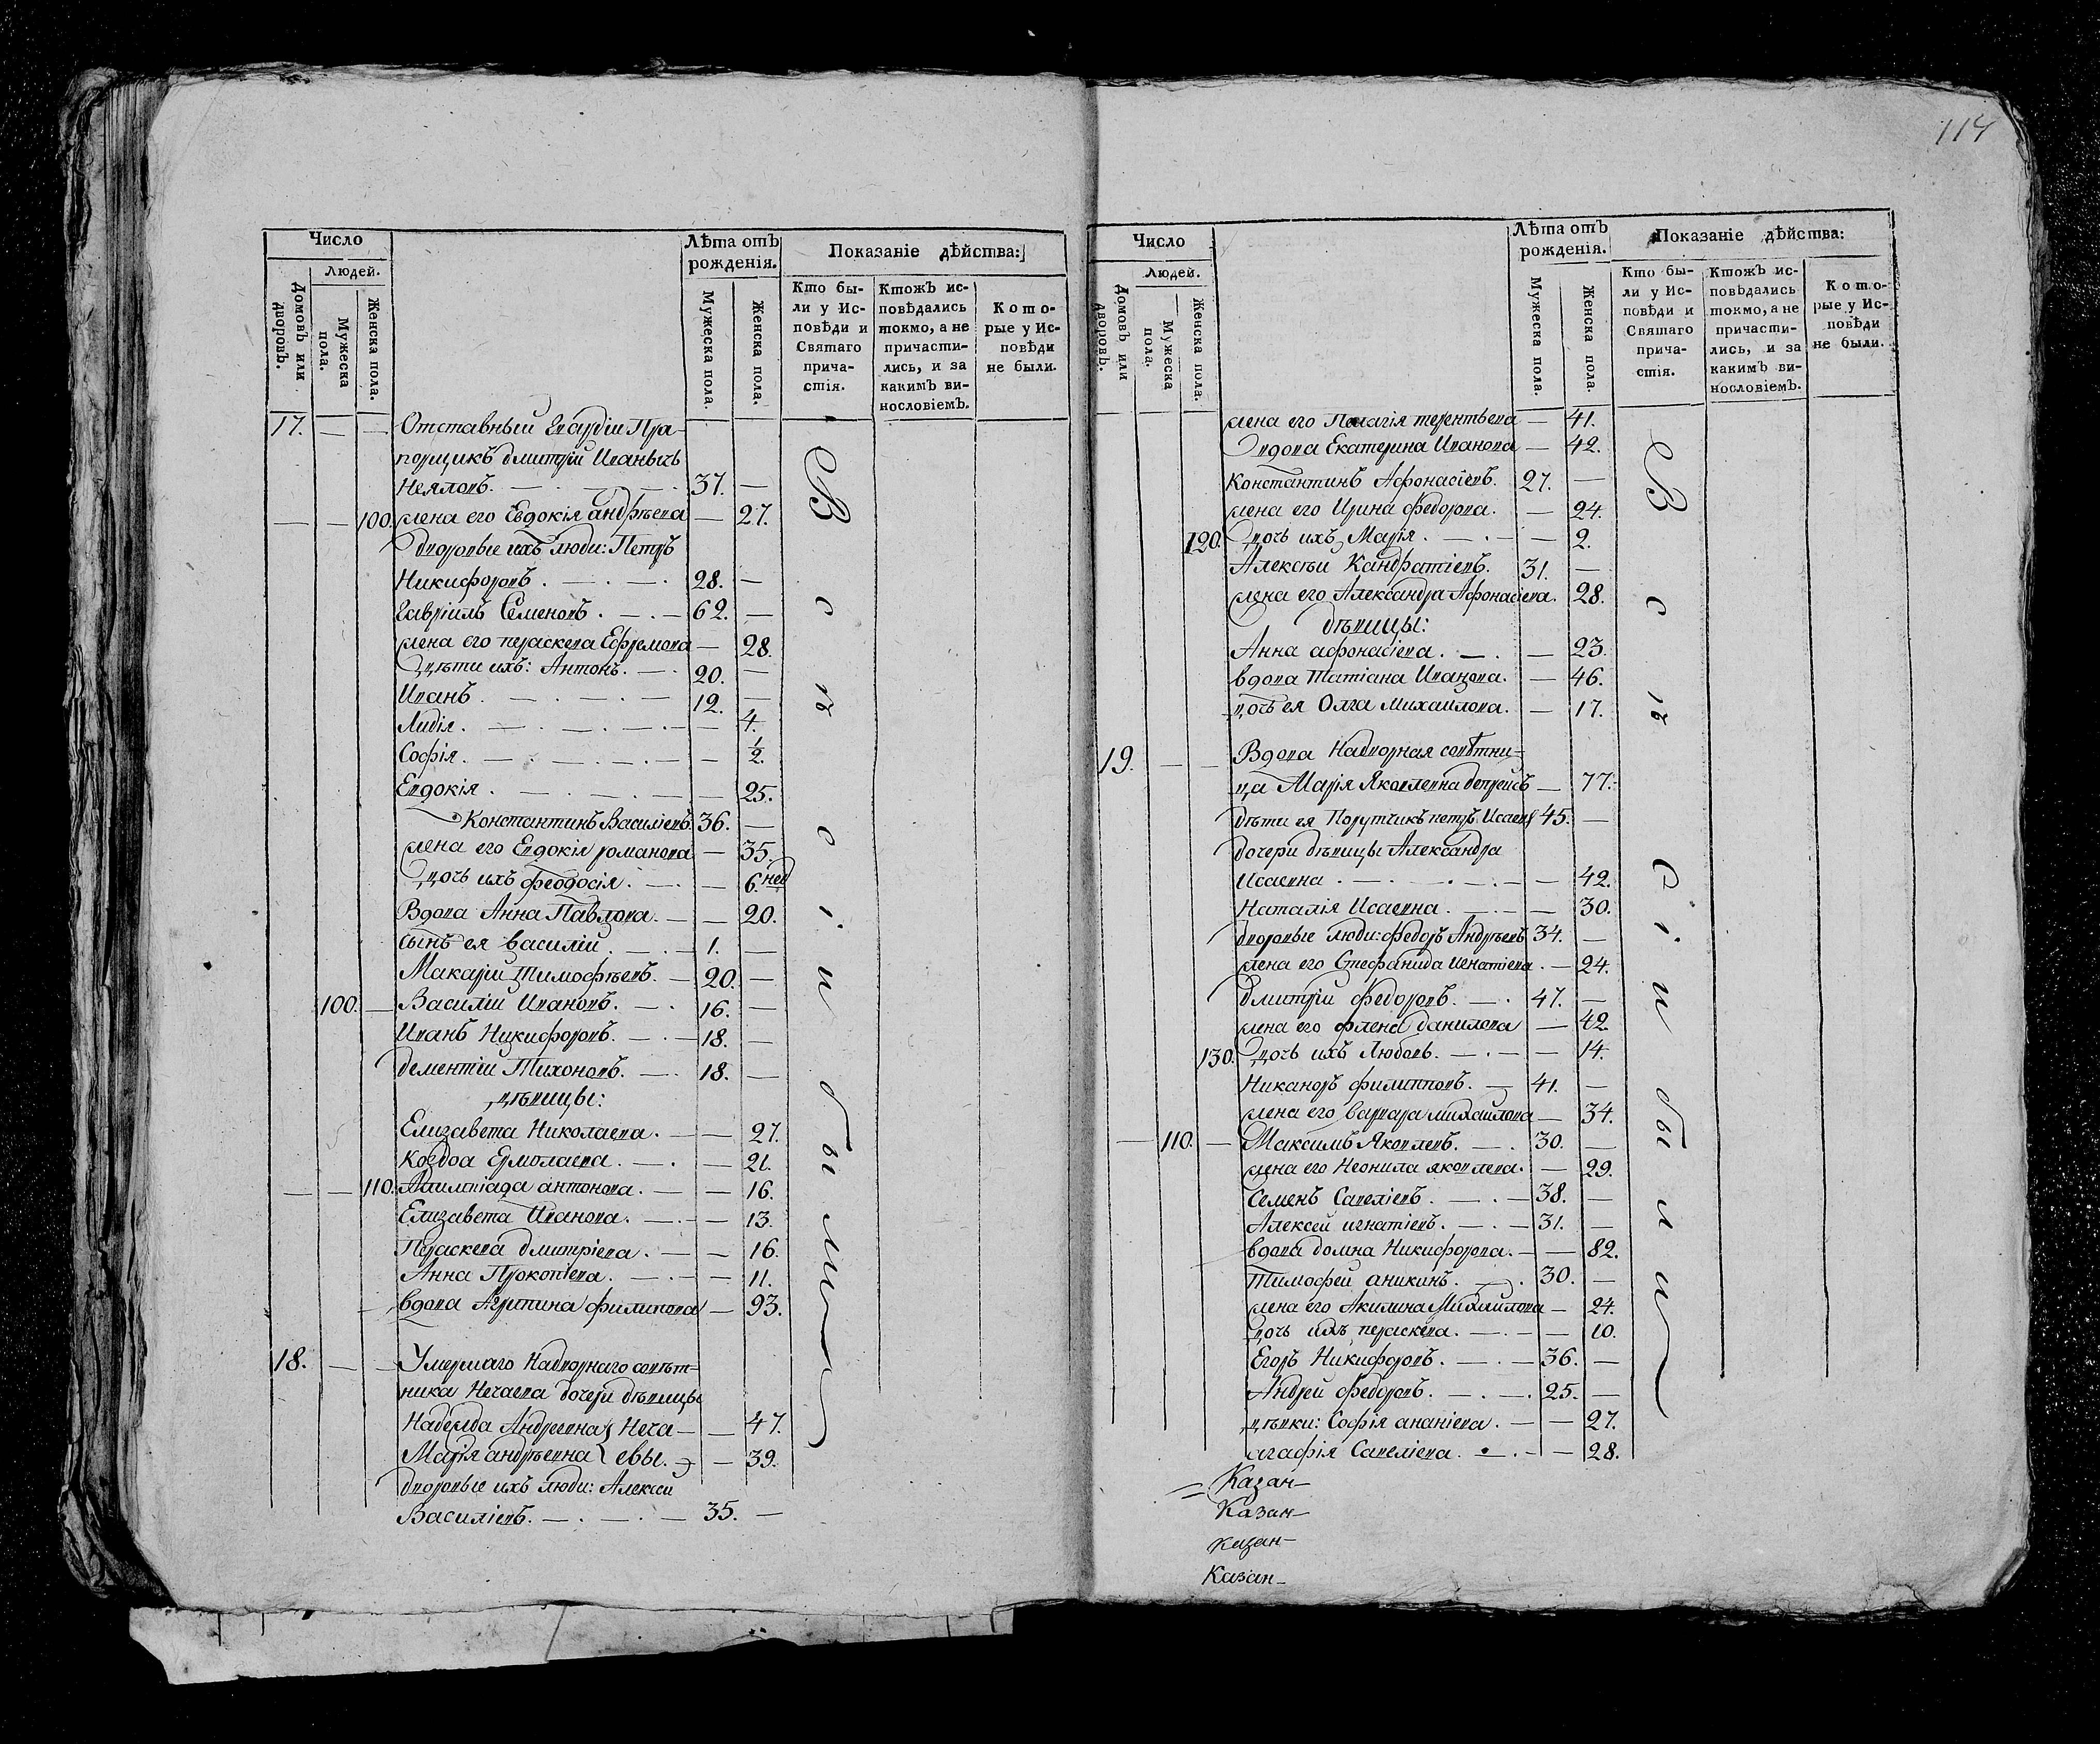 114
Число
Людей.
Домовъ или дворовъ.
Мужеска пола.
Женска пола.
Лѣта отъ рожденія.
Мужеска пола.
Женска пола.
Показаніе дѣйства:
Кто были у Исповѣди и Святаго причастія.
Ктожъ исповѣдались токмо, а не причастились, и за какимъ винословіемъ.
Которые у Исповѣди не были.
17. — — Отставный Гвардіи Пра-
порщикъ Дмитрій Иванычь
Неяловъ. — 37. —
— — 100. жена его Евдокія андрѣева — 27.
Дворовые ихъ люди: Петръ
Никифоровъ. — 28. —
Гавріилъ Семеновъ. — 62. —
жена его параскева Ефремова — 28.
дѣти ихъ: Антонъ. — 20. —
Иванъ. — 12. —
Лидія. — 4.
Софія. — 1/2.
Евдокія. — 25.
Константинъ Василіевъ. 36. —
жена его Евдокія романова — 35.
дочь ихъ феодосія. — 6. нед
Вдова Анна Павлова. — 20.
сынъ ея василій. — 1. —
Макарій Тимофѣевъ. — 20. —
100. — Василій Ивановъ. — 16. —
Иванъ Никифоровъ. — 18. —
дементій Тихоновъ. — 18. —
дѣвицы:
Елизавета Николаева. — 27.
Ермолаева. — 21.
— — 110. антонова. — 16.
Елизавета Иванова. — 13.
Параскева дмитріева. — 16.
Анна Прокопіева. — 11.
вдова Агрипина филипова — 93.
18. — — Умершаго Надворнаго совѣт-
ника Нечаева дочери дѣвицы
Надежда Андреевна } Неча- — 47.
Марія андрѣевна } евы. — 39.
дворовые ихъ люди: Алексѣй
Василіевъ. — 35. —
Всѣ
о
і
и
были
Число
Людей.
Домовъ или дворовъ.
Мужеска пола.
Женска пола.
Лѣта отъ рожденія.
Мужеска пола.
Женска пола.
Показаніе дѣйства:
Кто были у Исповѣди и Святаго причастія.
Ктожъ исповѣдались токмо, а не причастились, и за какимъ винословіемъ.
Которые у Исповѣди не были.
жена его Пелагія терентьева — 41.
вдова Екатерина Иванова — 42.
Константинъ Афонасіевъ. 27. —
жена его Ирина федорова. — 24.
120. дочь ихъ Марія. — 2.
Алексѣи Кандратіевъ. 31. —
жена его Александра Афонасіева. 28.
дѣвицы:
Анна афонасіева. — 23.
вдова Татіана Иванова. — 46.
дочь ея Олга михаилова. — 17.
19. — — Вдова Надворная совѣтни-
ца Марія Яковлевна — 77.
дѣти ея Порутчикъ петръ Исаевъ 45. —
дочери дѣвицы Александра
Исаевна. — 42.
Наталія Исаевна. — 30.
дворовые люди: федоръ Андрѣевъ 34. —
жена его Стефанида игнатіева. — 24.
Дмитрій федоровъ. — 47. —
жена его данилова — 42.
130. дочь ихъ Любовь. — 14.
Никаноръ филипповъ. — 41. —
жена его варвара михаилова — 34.
— 110. — Максимъ Яковлевъ. — 30. —
жена его Неонила яковлева. — 29.
Семенъ Савеліевъ. — 38. —
Алексей игнатіевъ. — 31. —
вдова домна Никифорова. — 82.
Тимофей аникинъ. — 30. —
жена его Акилина Михаилова — 24.
дочь ихъ параскева. — 10.
Егоръ Никифоровъ. — 36. —
Андрей федоровъ. — 25. —
дѣвки: Софія ананіева. — 27.
агафія Савеліева. — 28.
Всѣ
сіи
были
Казан-
Казан-
Казан-
Казан-